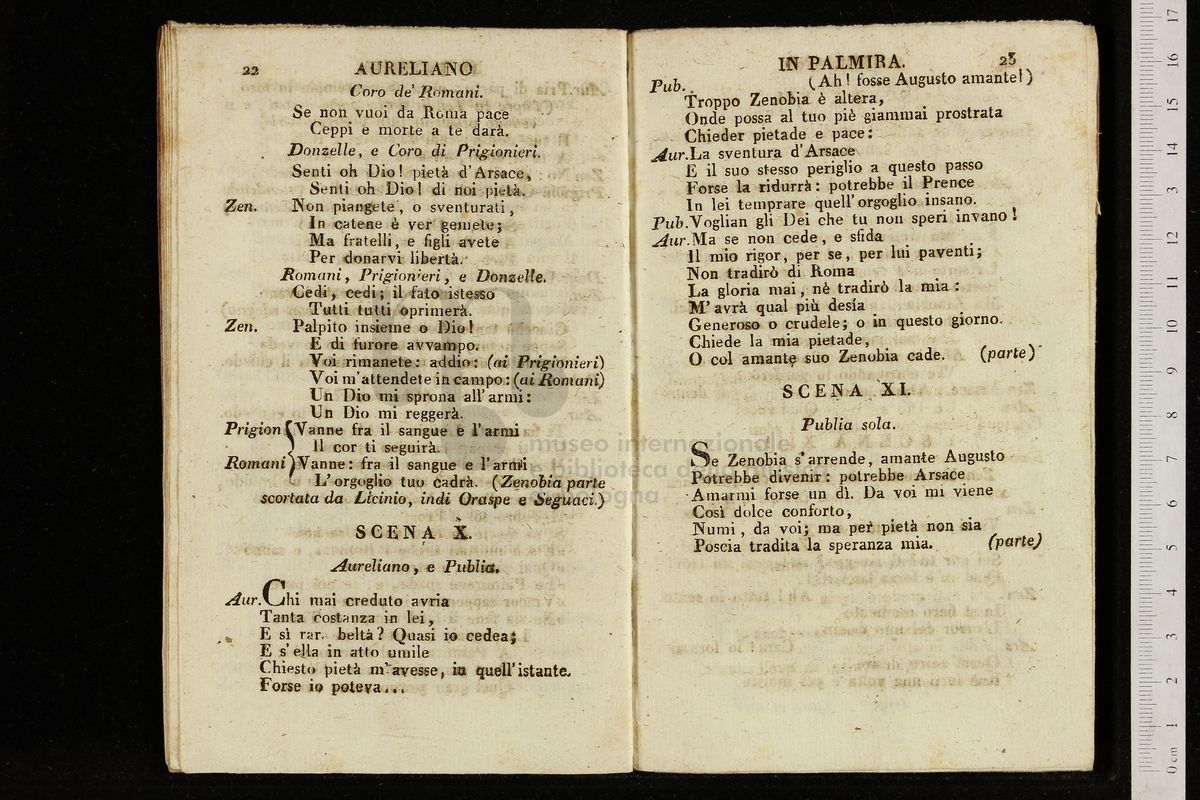 22 AURELIANO
Coro de' Romani.
Se non vuoi da Roma pace
Ceppi e morte a te darà.
Donzelle, e Coro di Prigionieri.
Senti oh Dio! pietà d'Arsace,
Senti oh Dio! di noi pietà.
Zen. Non piangete, o sventurati,
In catene è ver gemete;
Ma fratelli, e figli avete
Per donarvi libertà.
Romani, Prigionieri, e Donzelle.
Cedi, cedi; il fato istesso
Tutti tutti oprimerà.
Zen. Palpito insieme o Dio!
E di furore avvampo.
Voi rimanete: addio: (ai Prigionieri)
Voi m'attendete in campo: (ai Romani)
Un Dio mi sprona all'armi:
Un Dio mi reggerà.
Prigion Vanne fra il sangue e l'armi
Il cor ti seguirà.
Romani Vanne: fra il sangue e l'armi
L'orgoglio tuo cadrà. (Zenobia parte
scortata da Licinio, indi Oraspe e Seguaci.)
SCENA X.
Aureliano, e Publia.
Aur. Chi mai creduto avria
Tanta costanza in lei,
E sì rar. beltà? Quasi io cedea;
E s'ella in atto umile
Chiesto pietà m'avesse, in quell'istante.
Forse io poteva...
IN PALMIRA. 23
Pub. (Ah! fosse Augusto amante!)
Troppo Zenobia è altera,
Onde possa al tuo piè giammai prostrata
Chieder pietade e pace:
Aur. La sventura d'Arsace
E il suo stesso periglio a questo passo
Forse la ridurrà: potrebbe il Prence
In lei temprare quell'orgoglio insano.
Pub. Voglian gli Dei che tu non speri invano!
Aur. Ma se non cede, e sfida
Il mio rigor, per se, per lui paventi;
Non tradirò di Roma
La gloria mai, nè tradirò la mia:
M'avrà qual più desía
Generoso o crudele; o in questo giorno.
Chiede la mia pietade,
O col amante suo Zenobia cade. (parte)
SCENA XI.
Publia sola.
Se Zenobia s'arrende, amante Augusto
Potrebbe divenir: potrebbe Arsace
Amarmi forse un dì. Da voi mi viene
Così dolce conforto,
Numi, da voi; ma per pietà non sia
Poscia tradita la speranza mia. (parte)
museo internazionale
e biblioteca della musica
di bologna
0 cm 1 2 3 4 5 6 7 8 9 10 11 12 13 14 15 16 17